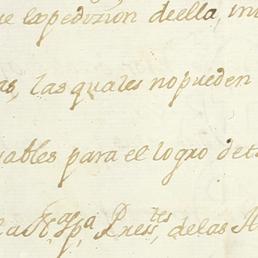 expedizion deella, in
as, las quales nopueden
ables para el logro de
la Mag. pa. Pres.tes, delas